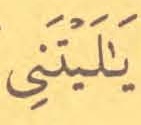 يَٰلَيْتَنِي